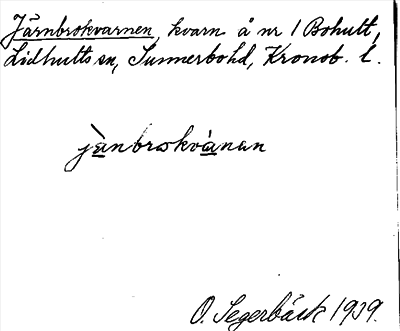 Järnbrokvarnen, kvarn å nr 1 Bohult,
Lidhults sn, Sunnerbo hd, Kronob. l.
jànbrokvánan
O. Segerbäck 1939.